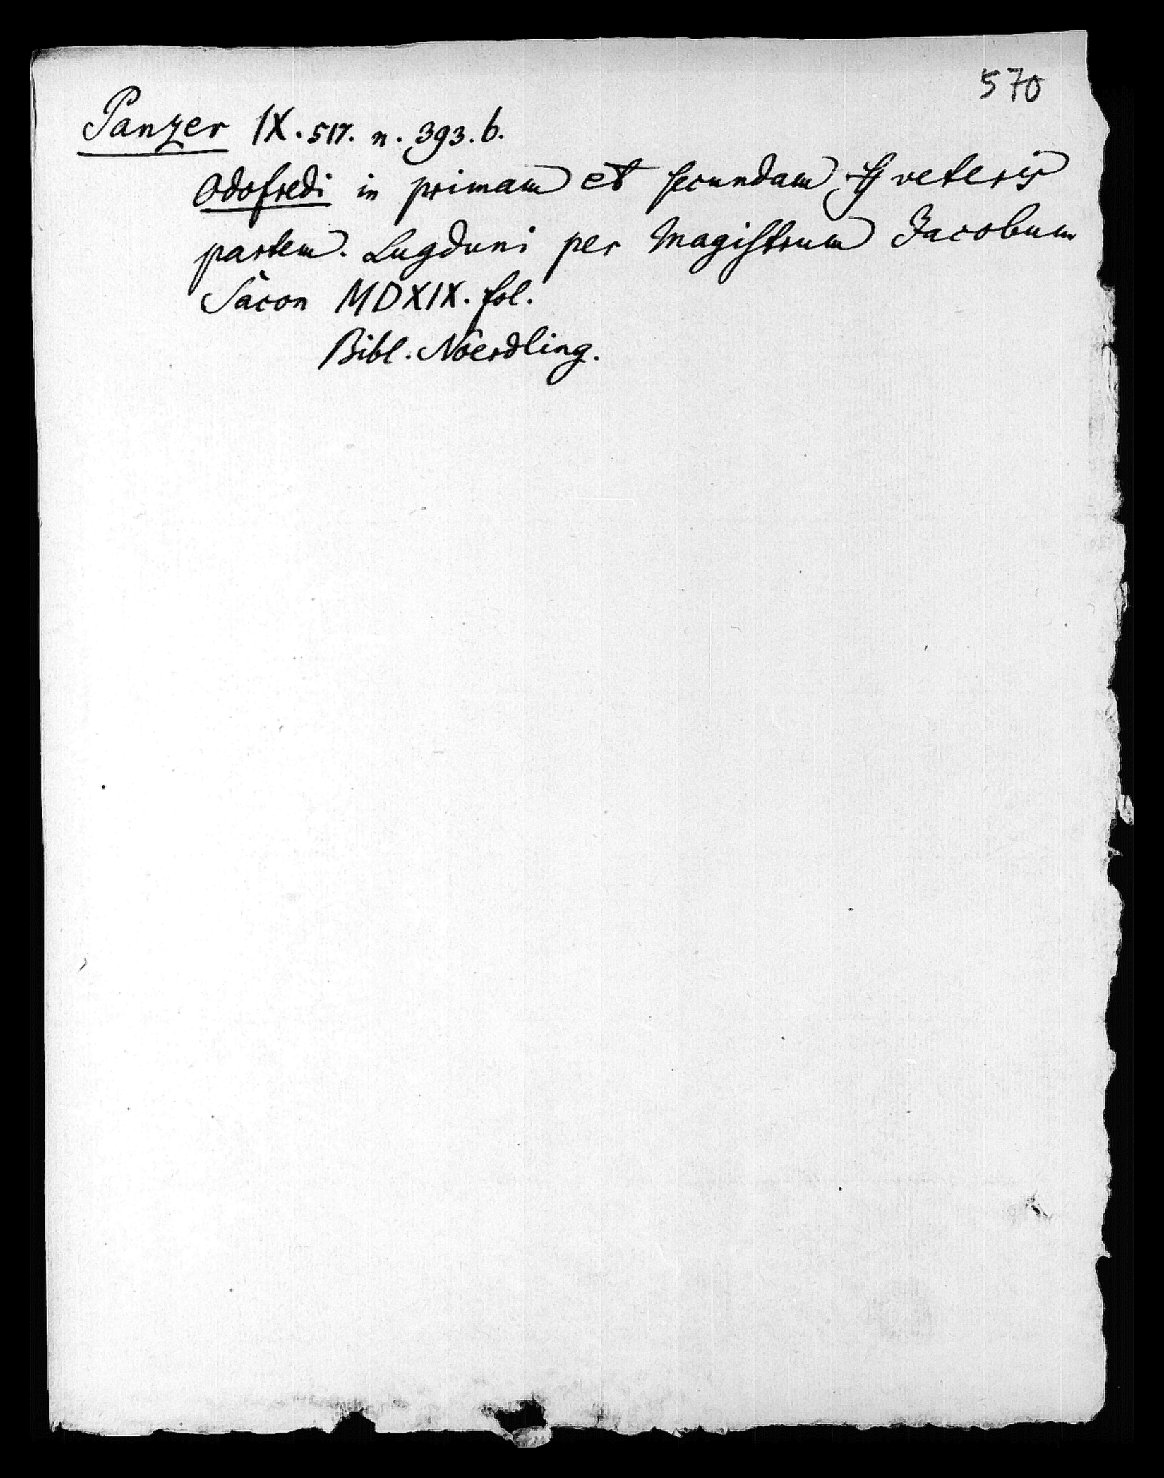 570
Panzer IX. 517. n. 393. b.
Odofredi in primam et secundam ff veteris
partem. Lugduni per Magistrum Jacobum
Sâcon MDXIX. fol.
Bibl. Nôerdling.